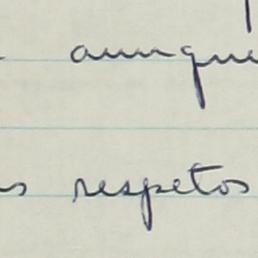 aunque
respetos